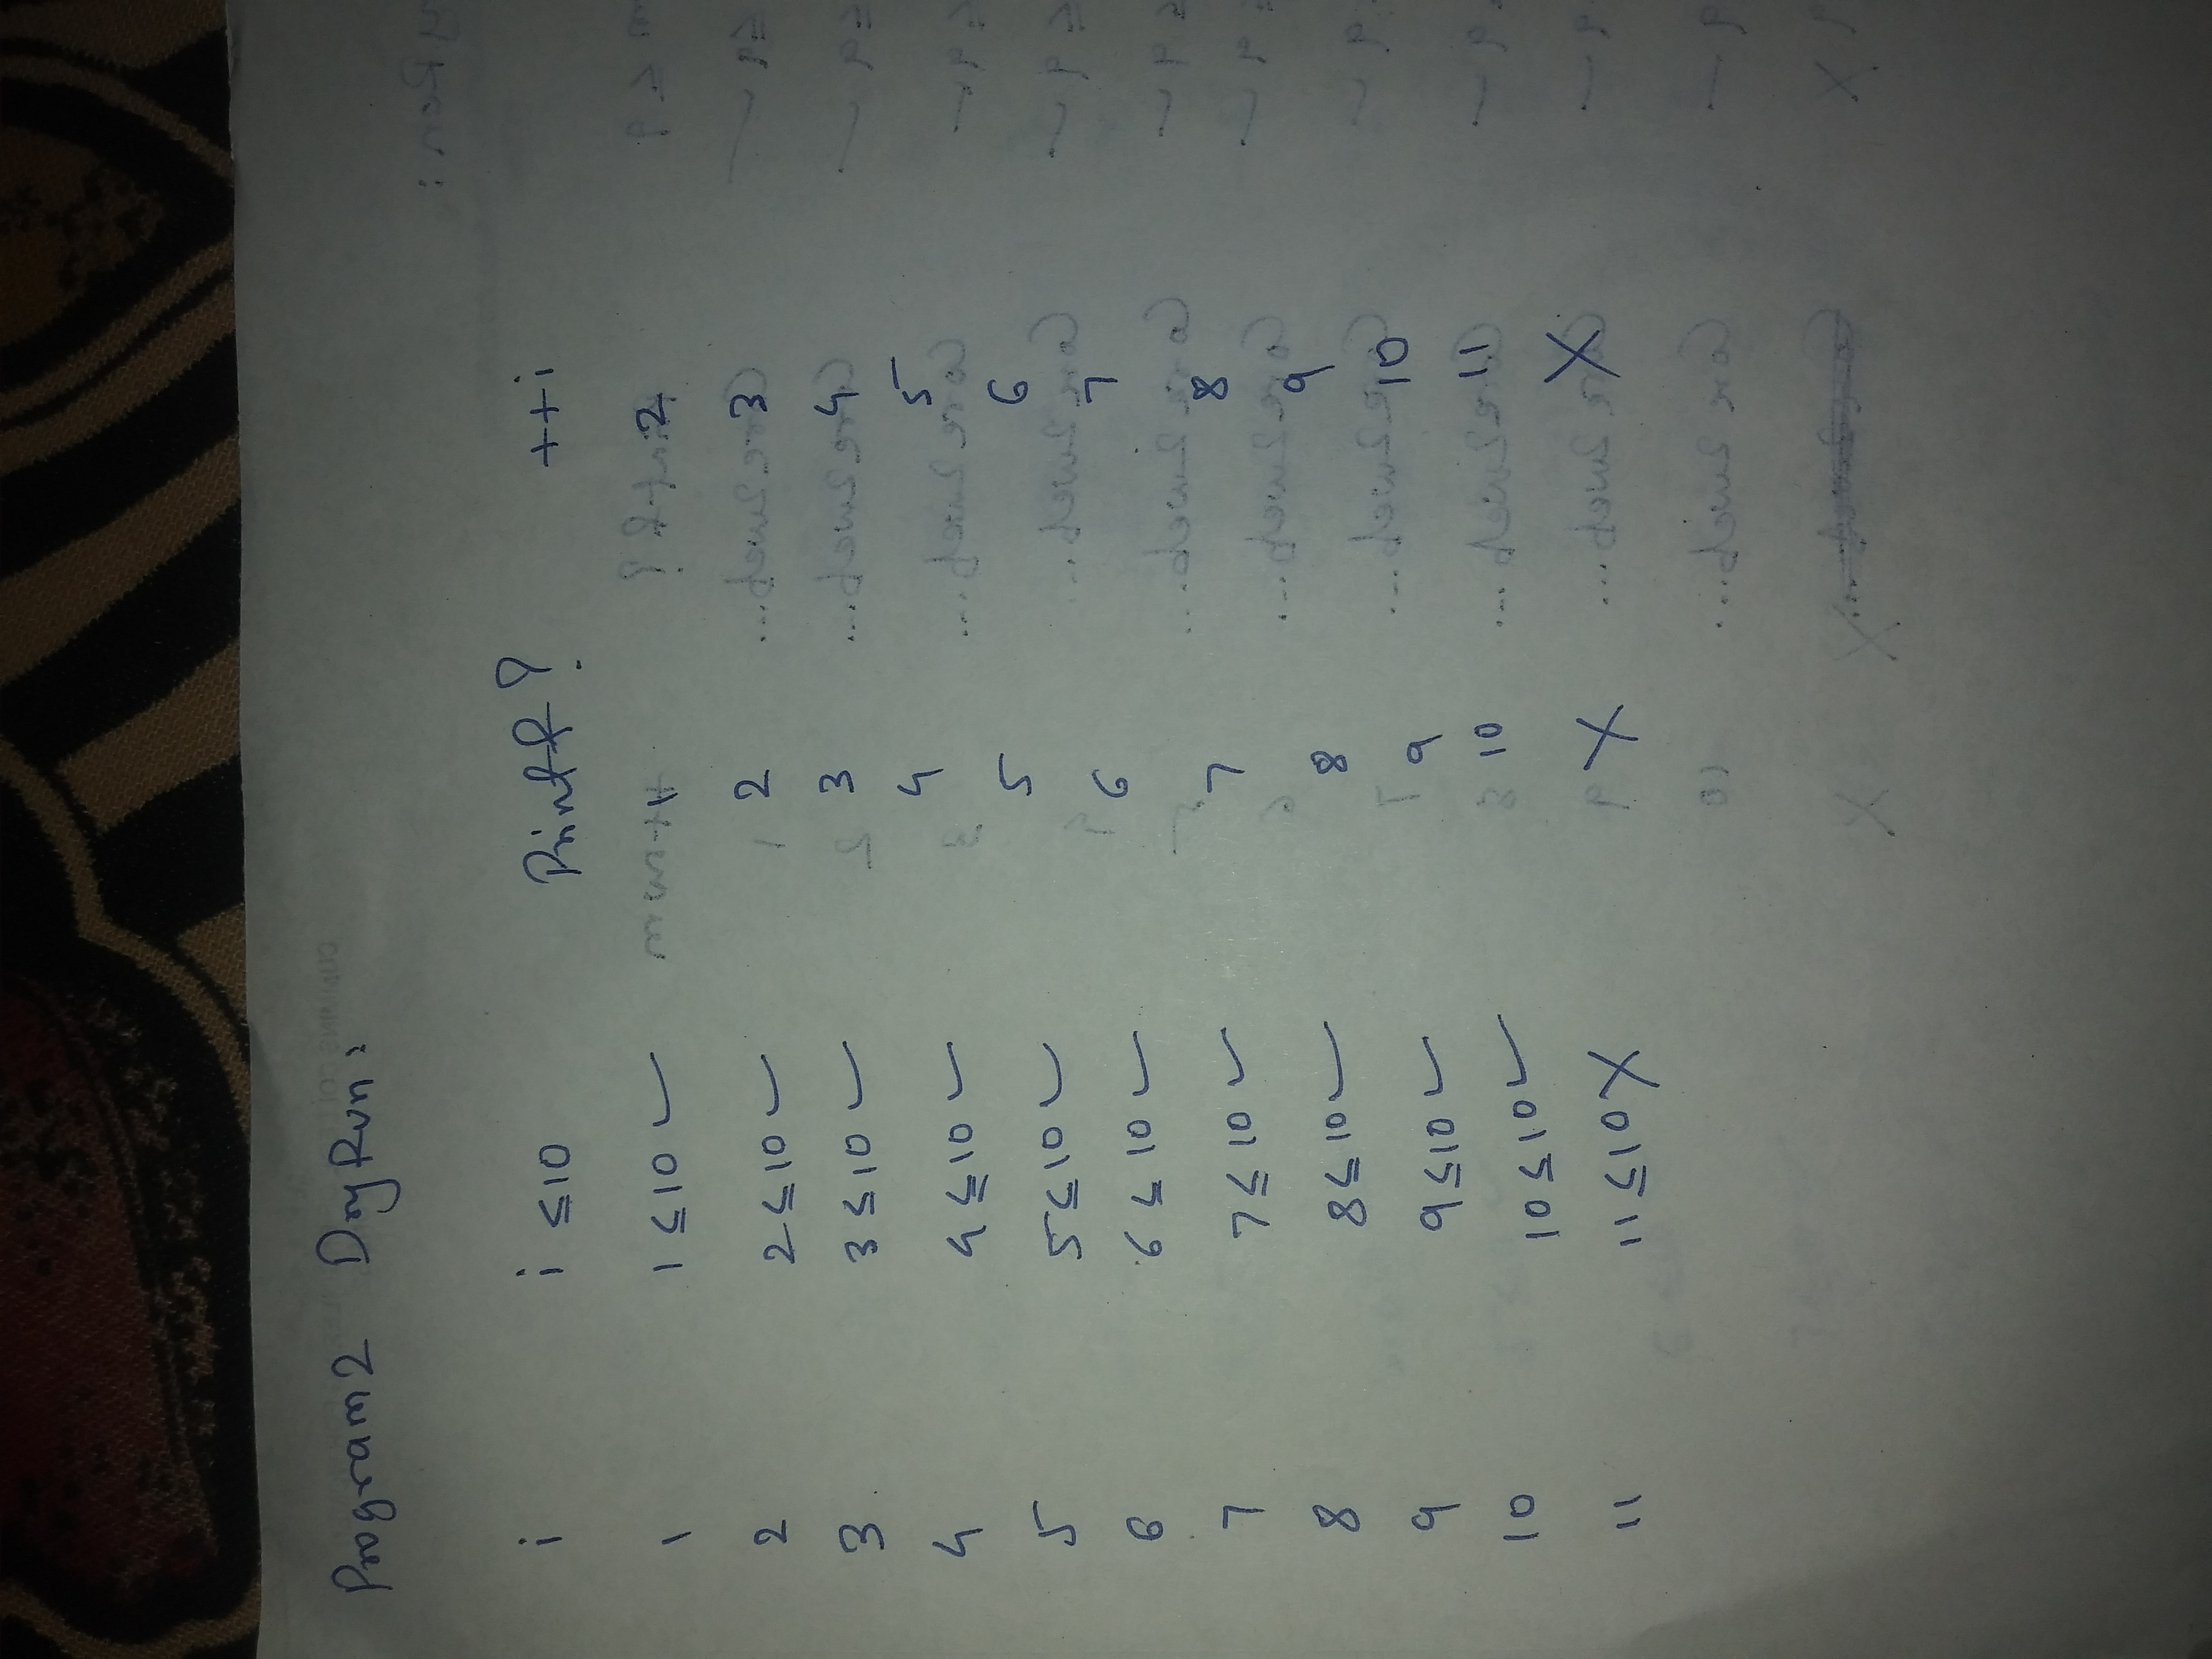 Program2 DryRun:
i i ≤10 Printf? ++i
1 1≤10 ✓ 1 2
2 2≤10 ✓ 2 3
3 3≤10 ✓ 3 4
4 4≤10 ✓ 4 5
5 5≤10 ✓ 5 6
6 6≤10 ✓ 6 7
7 7≤10 ✓ 7 8
8 8≤10 ✓ 8 9
9 9≤10 ✓ 9 10
10 10≤10 ✓ 10 11
11 11≤10 X X X